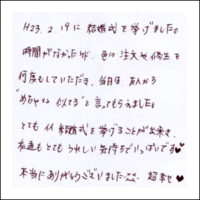 H23.2.19に 結婚式を挙げました。
時間がなかったが、色々注文や修正を
何度もしていただき、当日は、友人から
"めちゃ×2 似てる"と言ってもらえました。
とても イイ 結婚式を 挙げることが出来き、
私達も とても うれしい 気持ちでいっぱいです♥
本当に ありがとうございました 超幸せ♥